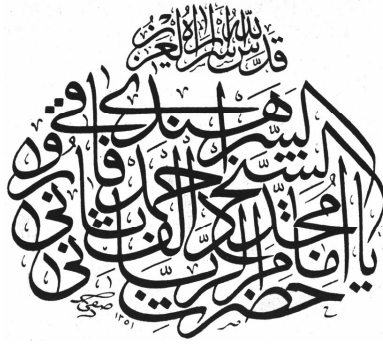 قدس الله العزيز
يا حضرت امام رباني
مجدد الف ثاني
الشيخ احمد فاروقي
السرهندي
١٣٥١